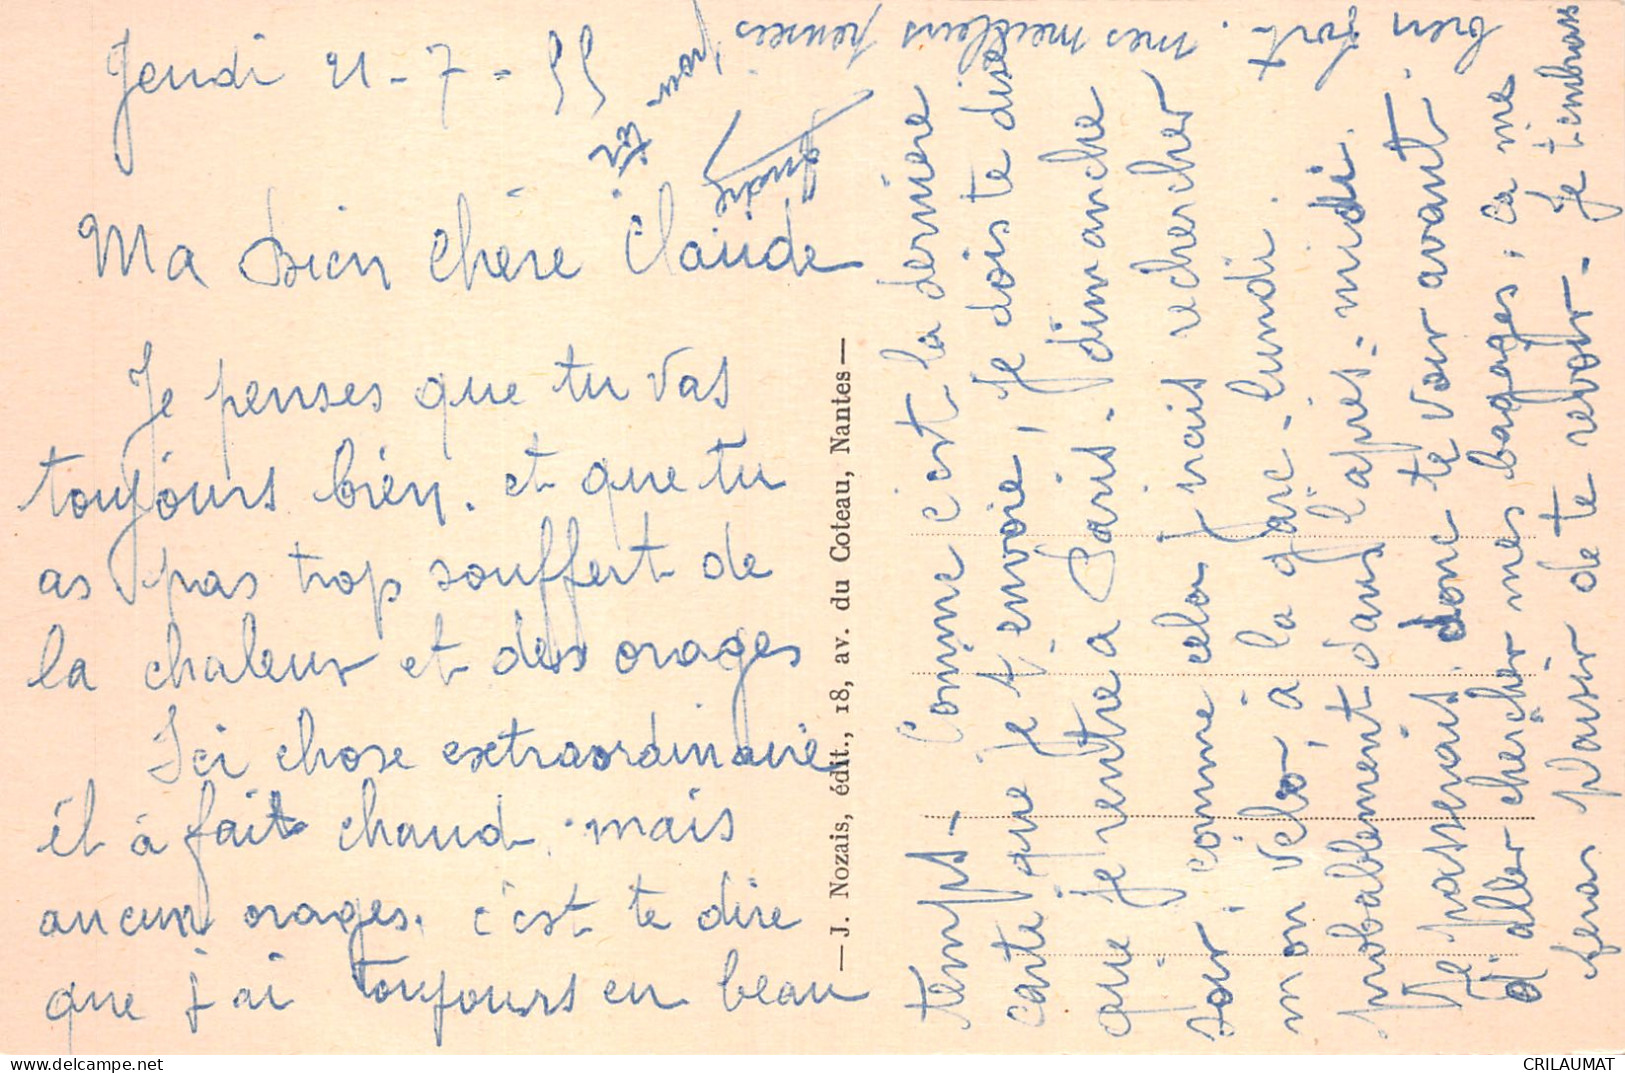 Jeudi 21-7-55
Ma bien chère Claude
Je penses que tu vas
toujours bien. et que tu
as pas trop souffert de
la chaleur et des orages
Ici chose extraordinaire
il à fait chaud. mais
aucun orages. c'est te dire
que j'ai toujours en beau
temps - Comme c'est la dernière
carte que je t'envoie, je dois te dire
que je rentre a Paris - dimanche
soir, comme cela j'irais rechercher
mon vélo, à la gare - lundi.
probablement dans l'après-midi.
Je passerais donc te voir avant
d'aller chercher mes bagages, ça me
feras plaisir de te revoir - Je t'embrass
bien fort. mes meilleurs pensées
pour toi
André
— J. Nozais, édit., 18, av. du Coteau, Nantes —
CRILAUMAT